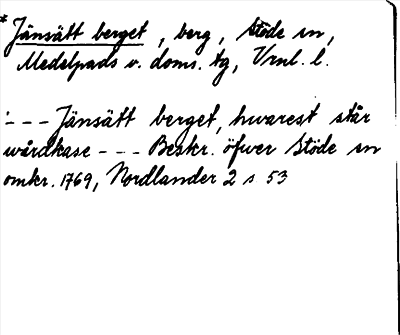 *Jänsätt berget, berg, Stöde sn,
Medelpads v. doms. tg, Vrnl. l.
'--- Jänsätt berget, hwarest står
wårdkase --- Beskr. öfwer Stöde sn
omkr. 1769, Nordlander 2 s 53